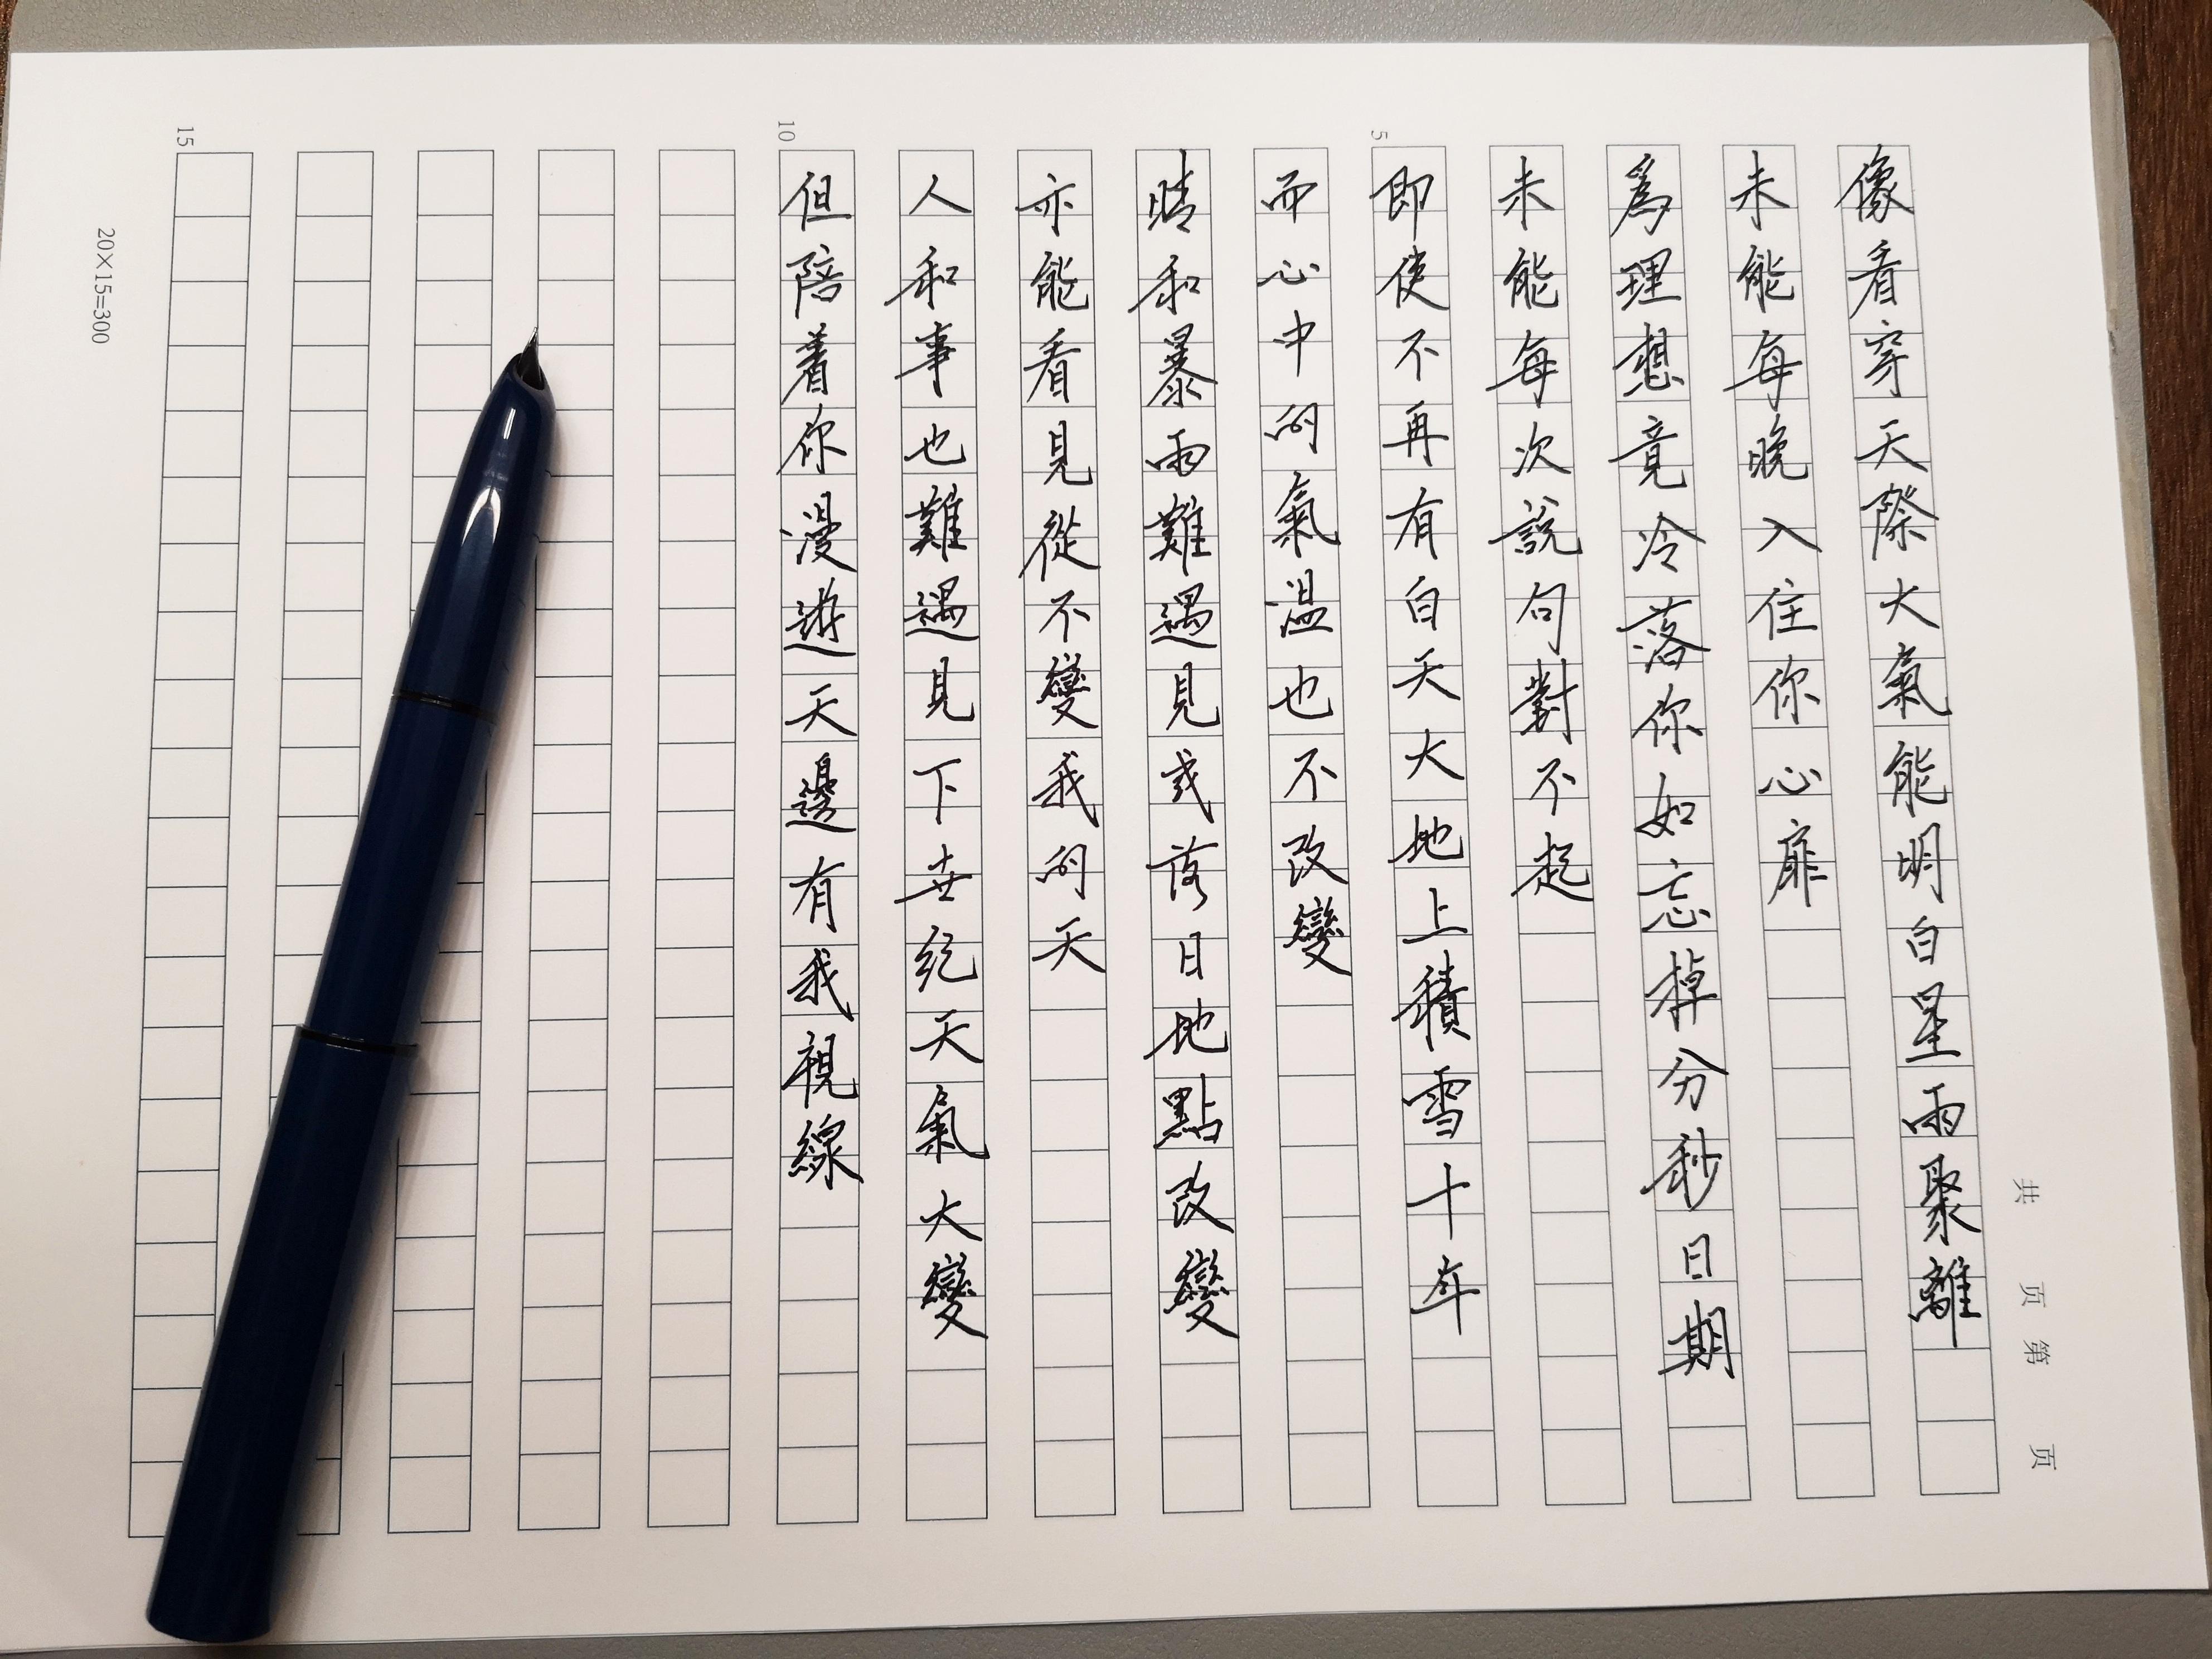 共 页 第 页
像看穿天際大氣能明白星雨聚離
未能每晚入住你心扉
為理想竟冷落你如忘掉分秒日期
未能每次說句對不起
5
即使不再有白天大地上積雪十年
而心中的氣溫也不改變
晴和暴雨難遇見或落日地點改變
亦能看見從不變我的天
人和事也難遇見下世紀天氣大變
10
但陪着你漫遊天邊有我視線
15
20×15=300